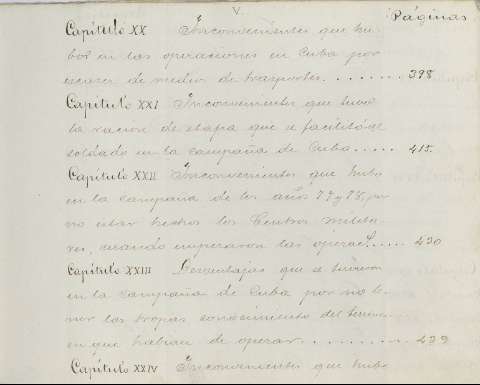 V
Páginas
Capítulo XX Inconvenientes que hu-
bo en las operaciones en Cuba por
acarer de medios de trasportes. . . . . . . . 398
Capítulo XXI Inconvenientes que tuvo
la racion de etapa que se facilitó al
soldado en la campaña de Cuba. . . . . 415
Capítulo XXII Inconvenientes que hubo
en la campaña de los años 77 y 78, por
no estar hechos los Centros milita-
res, cuando empezaron las operac.s . . . . . 430
Capítulo XXIII Desventajas que se tuvieron
en la campaña de Cuba por no te-
ner las tropas conocimiento del terreno
en que habian de operar. . . . . . . . . . . 439
Capítulo XXIV Inconvenientes que hubo